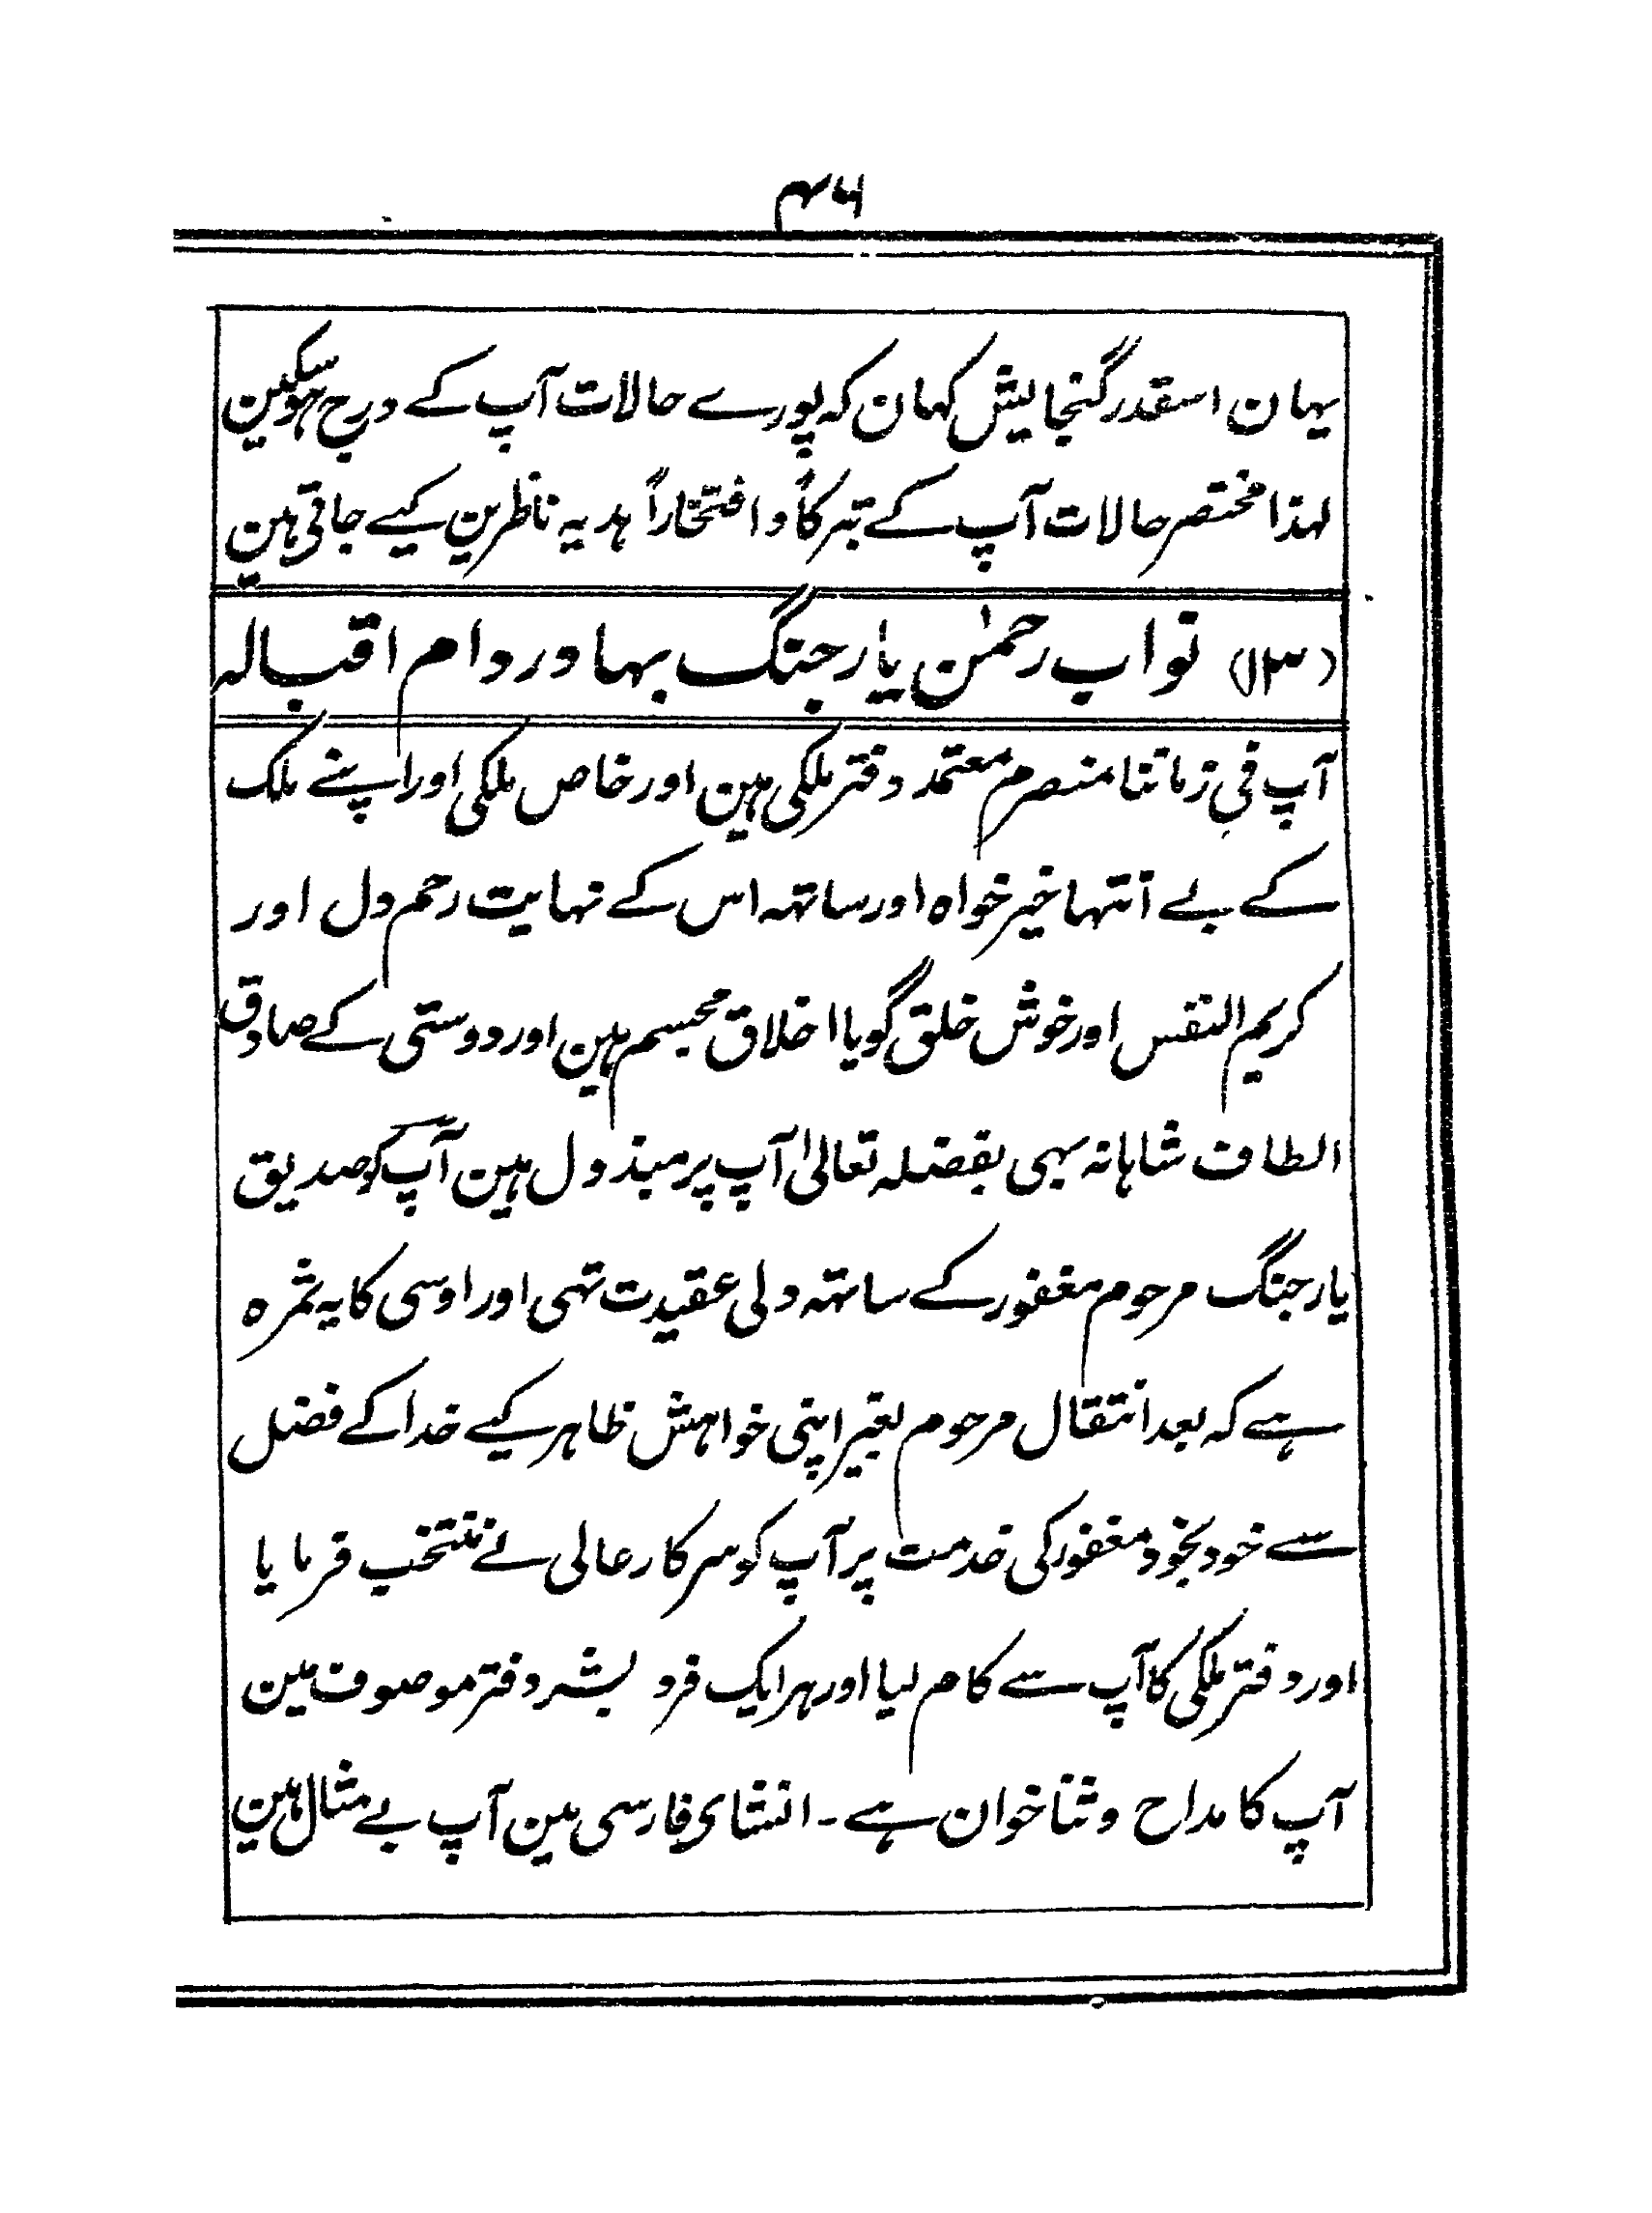 یہان اسقدر گنجایش کہان کہ پورے حالات آپ کے درج ہوسکین
لہذا مختصر حالات آپ کے تبرکاً و افتخاراً ہدیہ ناظرین کیے جاتی ہین
(۱۳) نواب رحمٰن یار جنگ بہادر دام اقبالہ
آپ فی زماننا منصرم معتمد دفتر ملکی ہین اور خاص ملکی اور اپنے ملک
کے بے انتہا خیر خواہ اور ساتہہ اس کے نہایت رحم دل اور
کریم النفس اور خوش خلق گویا اخلاق مجسم ہین اور دوستی کے صادق
الطاف شاہانہ بہی بفضلہ تعالیٰ آپ پر مبذول ہین آپ کو صدیق
یار جنگ مرحوم مغفور کے ساتہہ دلی عقیدت تہی اور اوسی کا یہ ثمرہ
ہے کہ بعد انتقال مرحوم بغیر اپنی خواہش ظاہر کیے خدا کے فضل
سے خود بخود مغفور کی خدمت پر آپ کو سرکار عالی نے منتخب فرمایا
اور دفتر ملکی کا آپ سے کام لیا اور ہر ایک فرد بشر دفتر موصوف مین
آپ کا مداح و ثنا خوان ہے ۔ انشای فارسی مین آپ بے مثال ہین